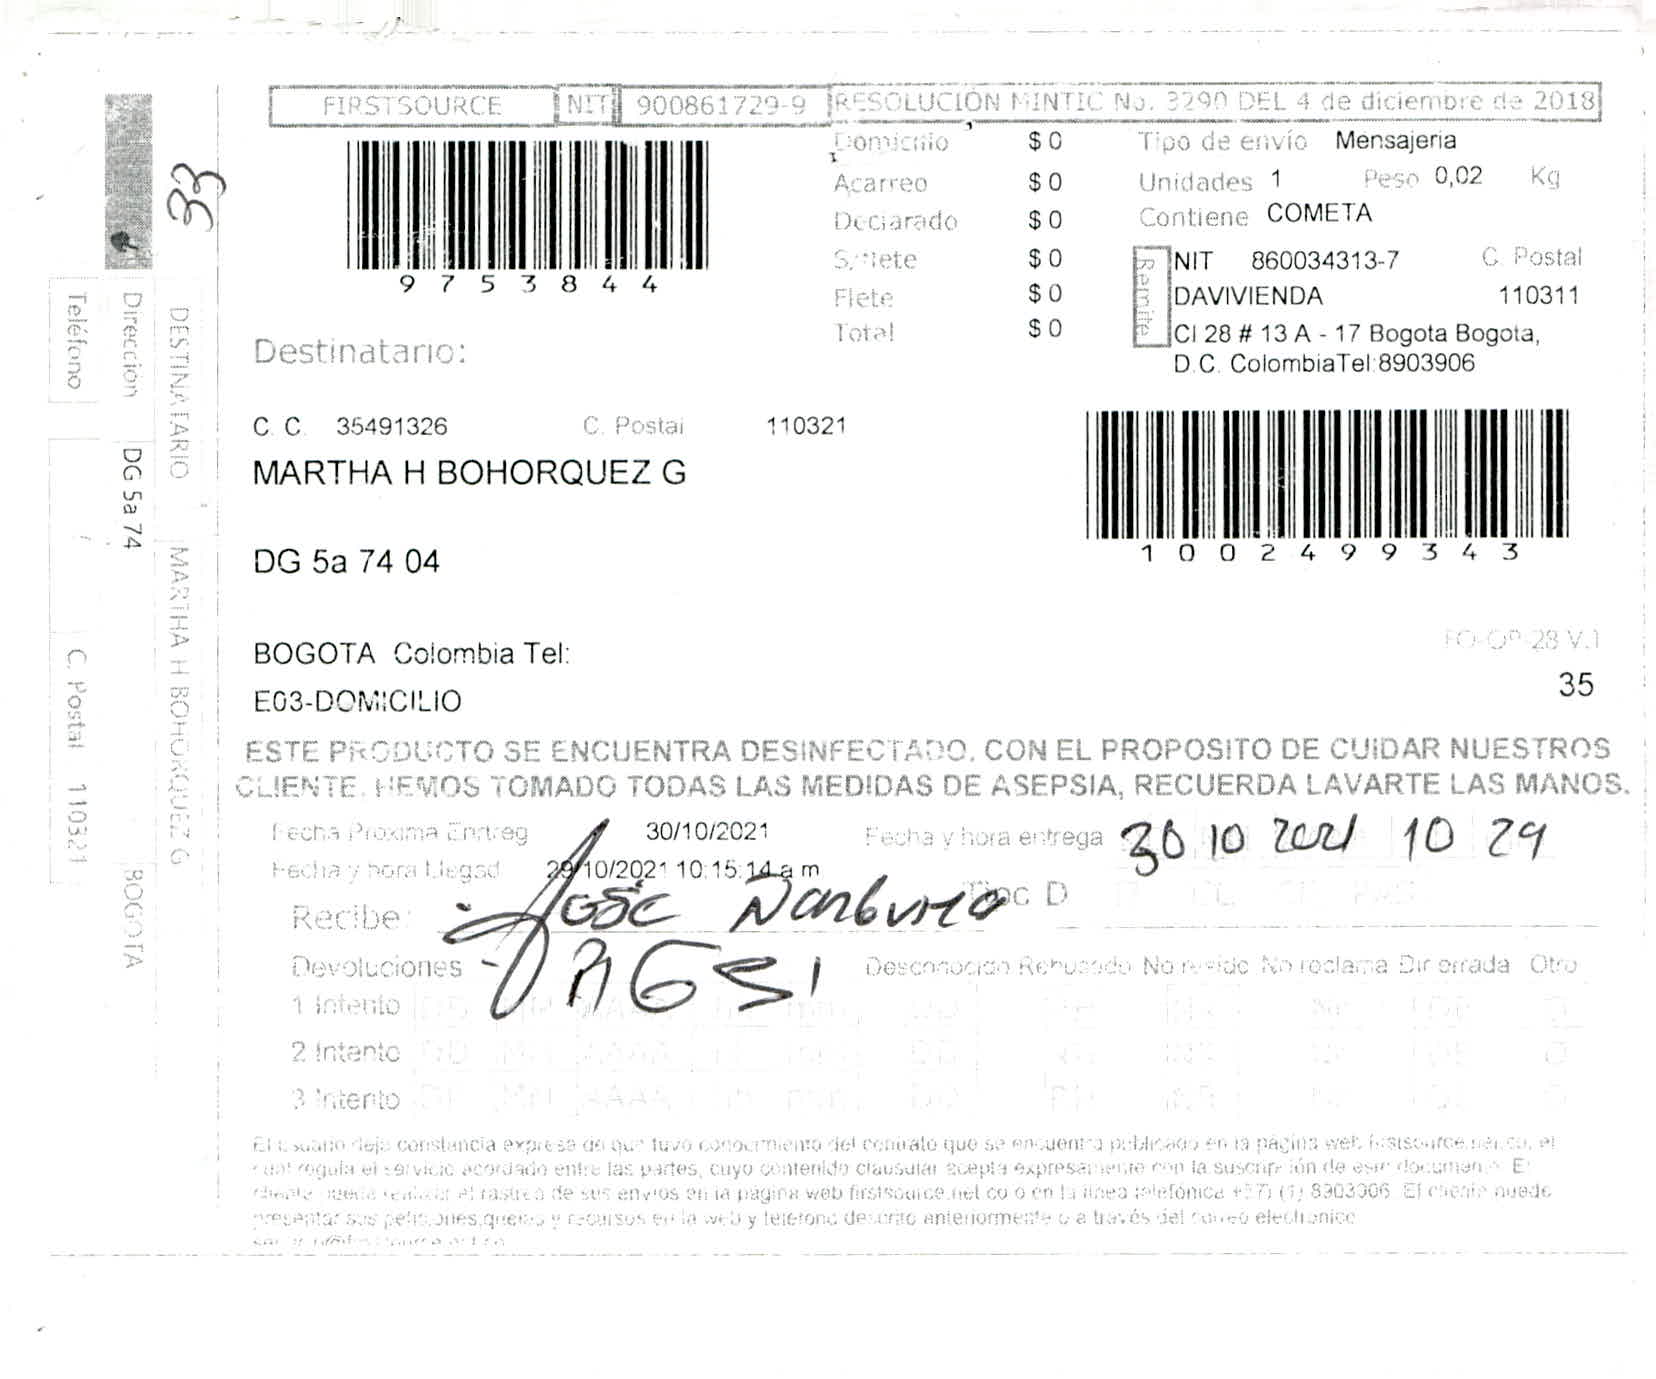 FIRSTSOURCE NIT 900861729-9 RESOLUCIÓN MINTIC No. 3290 DEL 4 de diciembre de 2018
9753844
Domicilio $ 0
Acarreo $ 0
Declarado $ 0
S/flete $ 0
Flete $ 0
Total $ 0
Tipo de envío Mensajeria
Unidades 1 Peso 0,02 Kg
Contiene COMETA
Remite
NIT 860034313-7 C. Postal
DAVIVIENDA 110311
Cl 28 # 13 A - 17 Bogota Bogota,
D.C. ColombiaTel:8903906
1002499343
33
DESTINATARIO MARTHA H BOHORQUEZ G
Dirección DG 5a 74 BOGOTA
Teléfono C. Postal 110321
Destinatario:
C. C. 35491326 C. Postal 110321
MARTHA H BOHORQUEZ G
DG 5a 74 04
BOGOTA Colombia Tel:
E03-DOMICILIO
FO-OP-28 V.1
35
ESTE PRODUCTO SE ENCUENTRA DESINFECTADO. CON EL PROPOSITO DE CUIDAR NUESTROS
CLIENTE. HEMOS TOMADO TODAS LAS MEDIDAS DE ASEPSIA, RECUERDA LAVARTE LAS MANOS.
Fecha Proxima Entreg 30/10/2021 Fecha y hora entrega 30 10 2021 10 29
Fecha y hora Llegad 29/10/2021 10:15:14 a m
Recibe: José Doc D
Devoluciones Desconocido Rehusado No reside No reclama Dir errada Otro
1 Intento
2 Intento
3 Intento
El usuario deja constancia expresa de que tuvo conocimiento del contrato que se encuentra publicado en la página web firstsource.net.co, el
cual regula el servicio acordado entre las partes, cuyo contenido clausular acepta expresamente con la suscripción de este documento. El
cliente puede realizar el rastreo de sus envios en la página web firstsource.net.co o en la linea telefónica +(57) (1) 8903906. El cliente puede
presentar sus peticiones,quejas y recursos en la web y telefono descrito anteriormente o a través del correo electronico